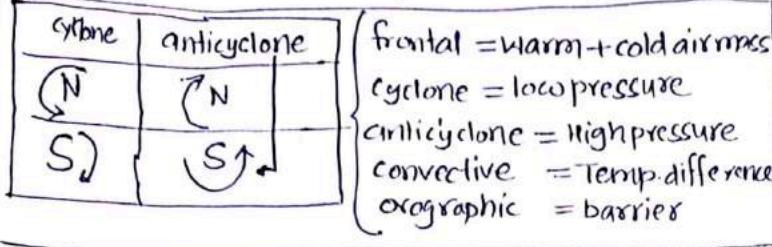 cyclone anticyclone
N N
S S
frontal = warm + cold airmass
cyclone = low pressure
anticyclone = High pressure
convective = Temp. difference
orographic = barrier